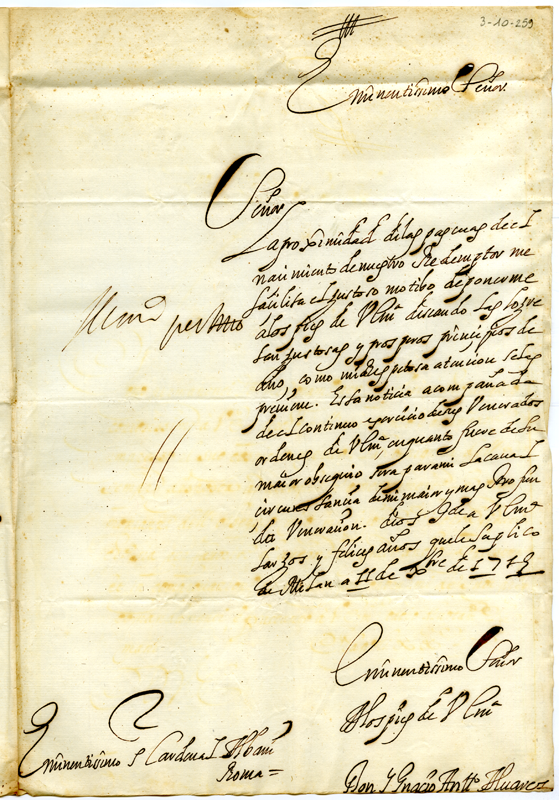 3-10-259
Eminentissimo Señor
Señor
La proximidad de las pascuas de el
nacimiento de nuestro Redemptor me
facilita el gustoso motibo de ponerme
a los pies de VEmª deseando las logre
tan gustosas y prosperos principios de
Año, como mi respetosa atencion se las
previene. Esta noticia acompañada
de el continuo exercicio de sus Venerados
ordenes de VEmª en quanto fuere de su
maior obsequio sera para mi la caval
circunstancia de mi maior y mas profun
da Veneracion. Dios gde a VEmª
largos y felices años que le suplico
de Milan a 11 de Xbre de 1719
Eminentissimo Señor
A los pies de VEmª
Eminentissimo S Cardenal Albani
Roma=
Don Ygnacio Antto Alvarez